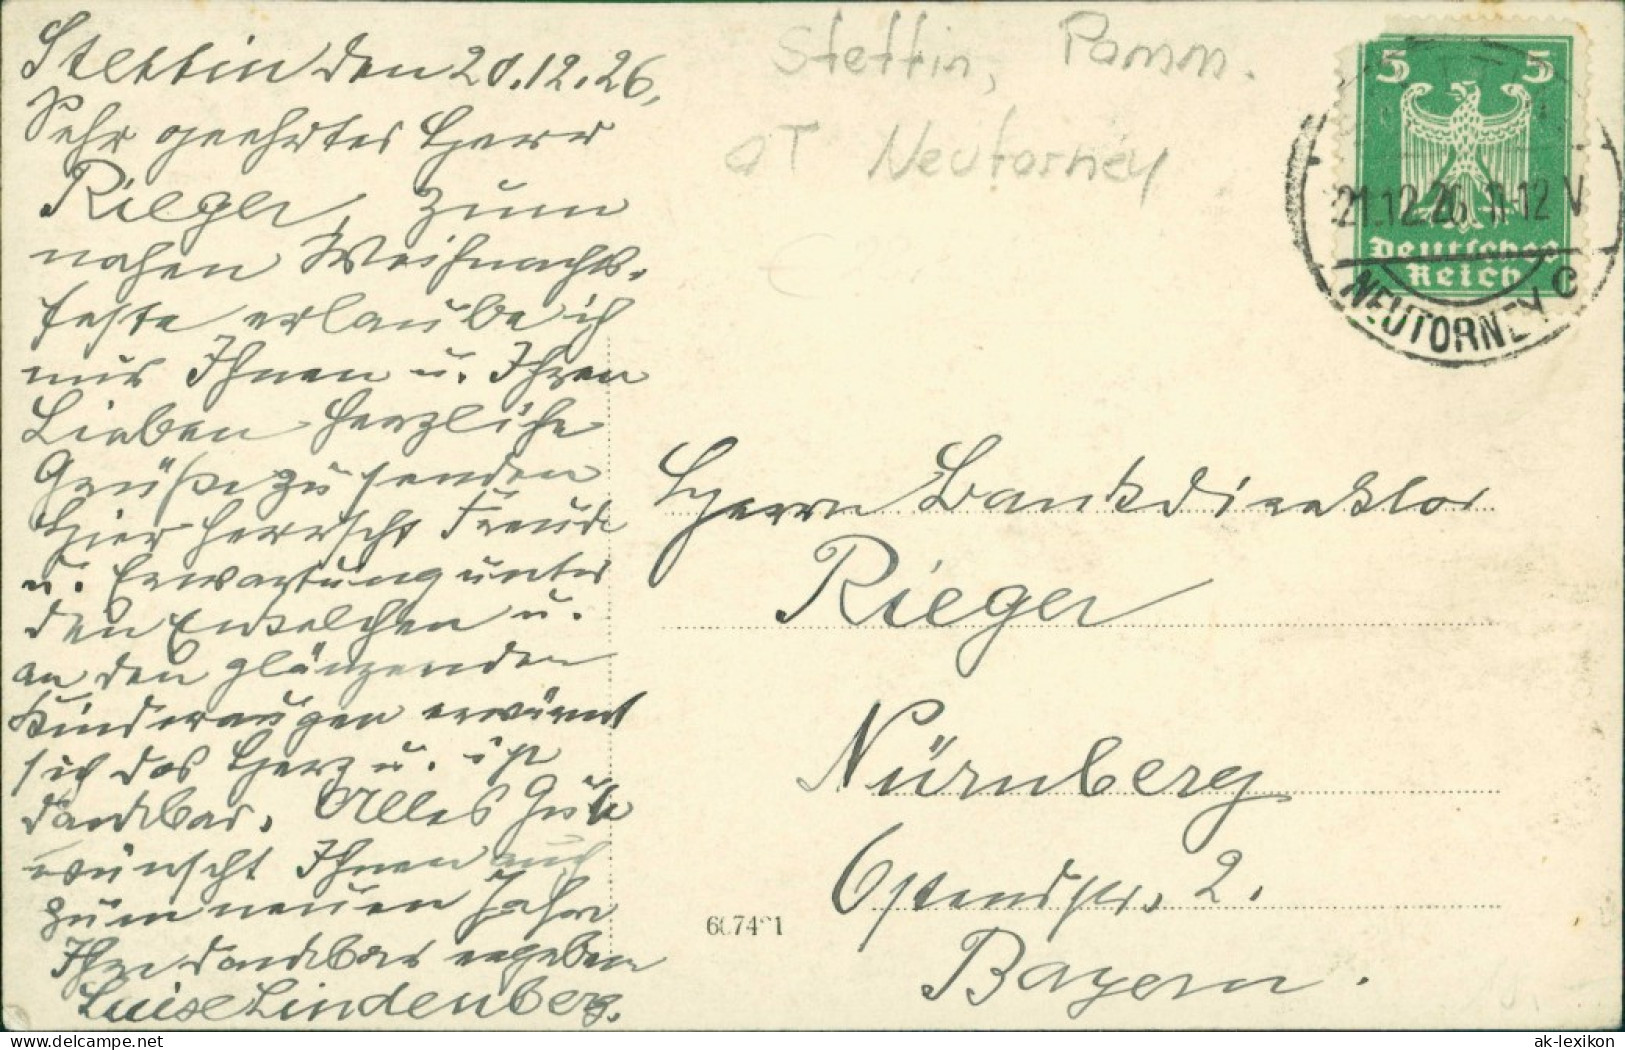 Stettin den 20.12.26.
Sehr geehrter Herr
Rieger, zum
nahen Weihnachts-
feste erlaube ich
mir Ihnen u. Ihren
Lieben herzliche
Grüße zu senden
Hier herrscht Freude
u. Erwartung unter
den Enkelchen u.
an den glänzenden
Kinderaugen erwärmt
sich das Herz u. ist
dankbar. Alles Gute
wünscht Ihnen auch
zum neuen Jahre
Ihre dankbar ergebene
Luise Lindenberg.
Stettin, Pomm.
OT Neutorney
5 5
21.12.26. 11-12 V
Deutsches
Reich
NEUTORNEY C
Herrn Bankdirektor
Rieger
Nürnberg
Ostendstr. 2.
Bayern.
ak-ansichtskarten.de
ak-lexikon